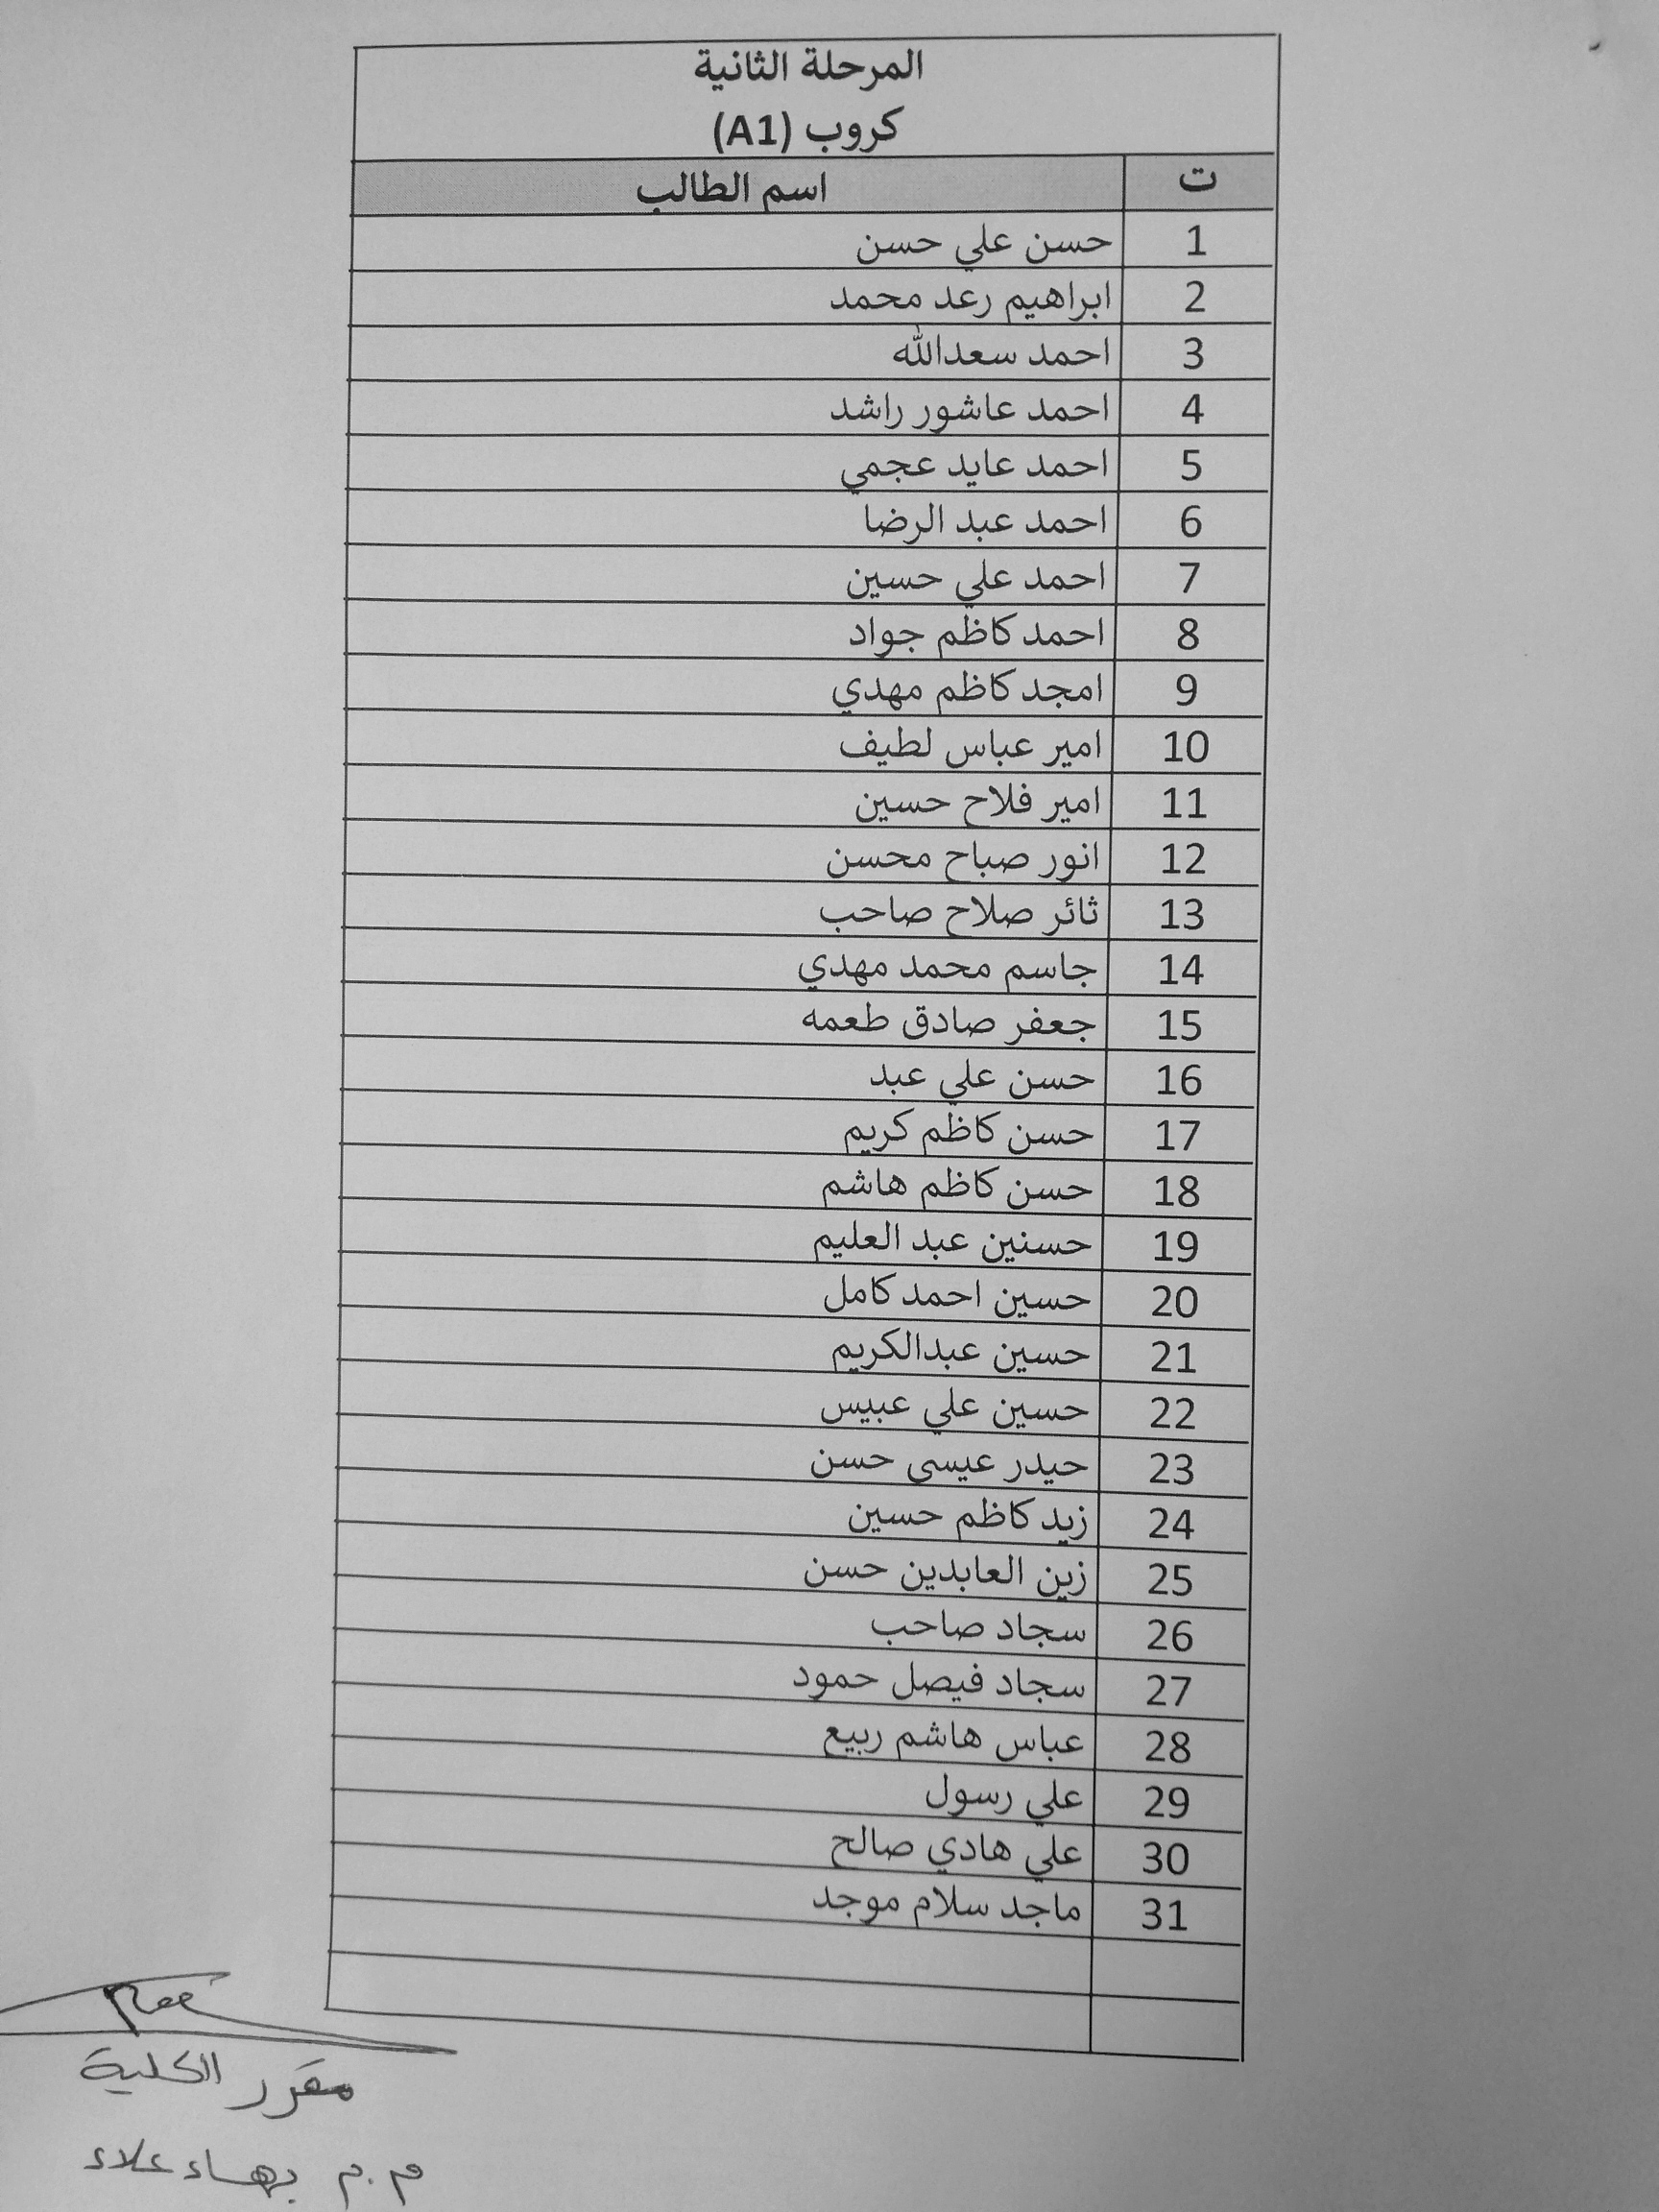 المرحلة الثانية
كروب (A1)
ت اسم الطالب
1 حسن علي حسن
2 ابراهيم رعد محمد
3 احمد سعدالله
4 احمد عاشور راشد
5 احمد عايد عجمي
6 احمد عبد الرضا
7 احمد علي حسين
8 احمد كاظم جواد
9 امجد كاظم مهدي
10 امير عباس لطيف
11 امير فلاح حسين
12 انور صباح محسن
13 ثائر صلاح صاحب
14 جاسم محمد مهدي
15 جعفر صادق طعمه
16 حسن علي عبد
17 حسن كاظم كريم
18 حسن كاظم هاشم
19 حسنين عبد العليم
20 حسين احمد كامل
21 حسين عبدالكريم
22 حسين علي عبيس
23 حيدر عيسى حسن
24 زيد كاظم حسين
25 زين العابدين حسن
26 سجاد صاحب
27 سجاد فيصل حمود
28 عباس هاشم ربيع
29 علي رسول
30 علي هادي صالح
31 ماجد سلام موجد
مقرر الكلية
م.م بهاء علاء